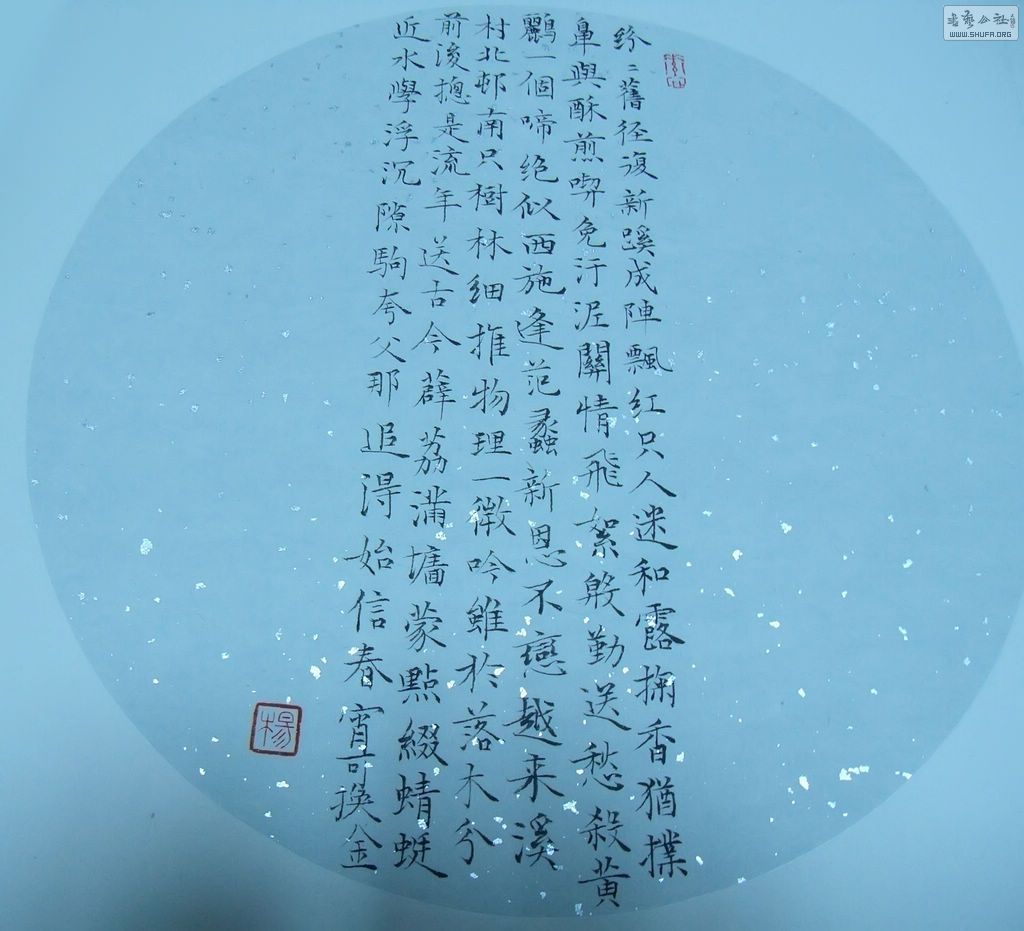 紛〻舊径復新蹊成陣飄红只人迷和露掬香猶撲
鼻與酥煎喫免汙泥關情飛絮殷勤送愁殺黄
鸝一個啼绝似西施逢范蠡新恩不戀越来溪
村北邨南只樹林细推物理一微吟雖於落木分
前後揔是流年送古今薜荔滿墉蒙點綴蜻蜓
近水學浮沉隙駒夸父那追得始信春宵可換金
楊
書藝公社
WWW.SHUFA.ORG